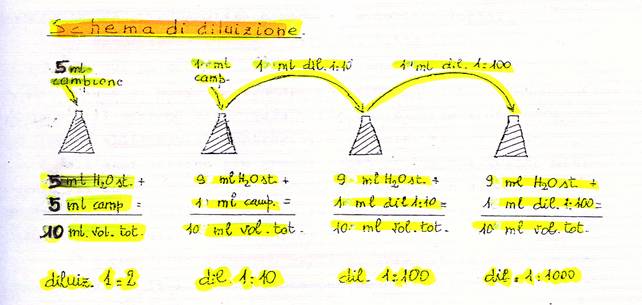 Schema di diluizione.
5 ml campione
1 ml camp.
1 ml dil. 1:10
1 ml dil. 1:100
5 ml H2O st. +
5 ml camp =
10 ml. vol. tot.
diluiz. 1=2
9 ml H2O st. +
1 ml camp. =
10 ml vol. tot.
dil. 1:10
9 ml H2O st. +
1 ml dil 1:10 =
10 ml vol. tot.
dil. 1:100
9 ml H2O st. +
1 ml dil. 1:100=
10 ml vol. tot.
dil. 1:1000